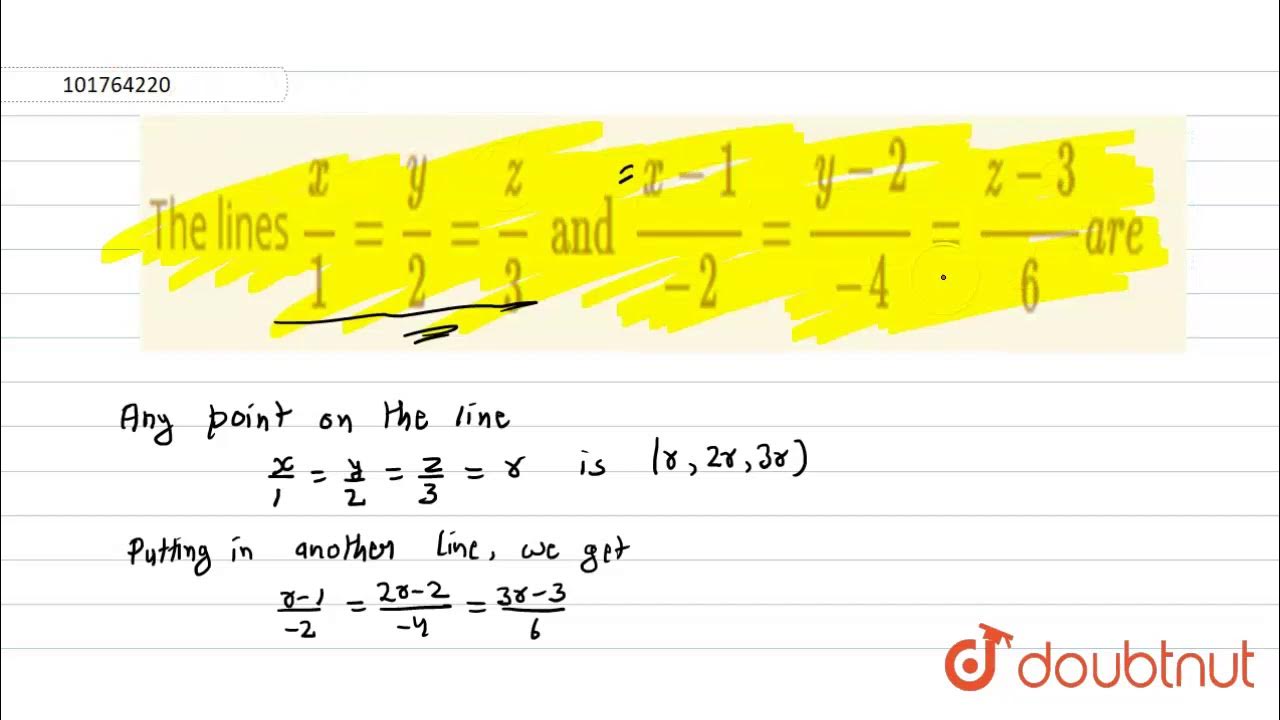 101764220
The lines x/1 = y/2 = z/3 and = x − 1/−2 = y − 2/−4 = z − 3/6 are
Any point on the line
x/1 = y/2 = z/3 = r is (r, 2r, 3r)
Putting in another line, we get
r-1/-2 = 2r-2/-4 = 3r-3/6
doubtnut